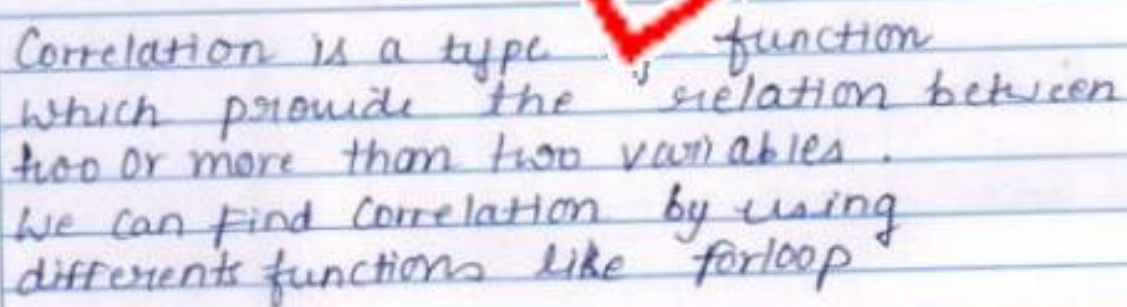 Correlation is a type function
which provide the relation between
two or more than two variables.
We can find Correlation by using
differents functions like forloop